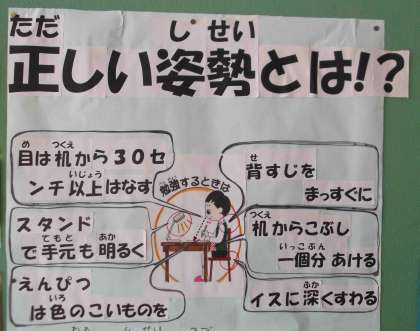 ただ しせい
正しい姿勢とは!?
勉強するときは
め つくえ
目は机から30セ
いじょう
ンチ以上はなす
せ
背すじを
まっすぐに
スタンド
てもと あか
で手元も明るく
つくえ
机からこぶし
いっこぶん
一個分あける
えんぴつ
いろ
は色のこいものを
ふか
イスに深くすわる